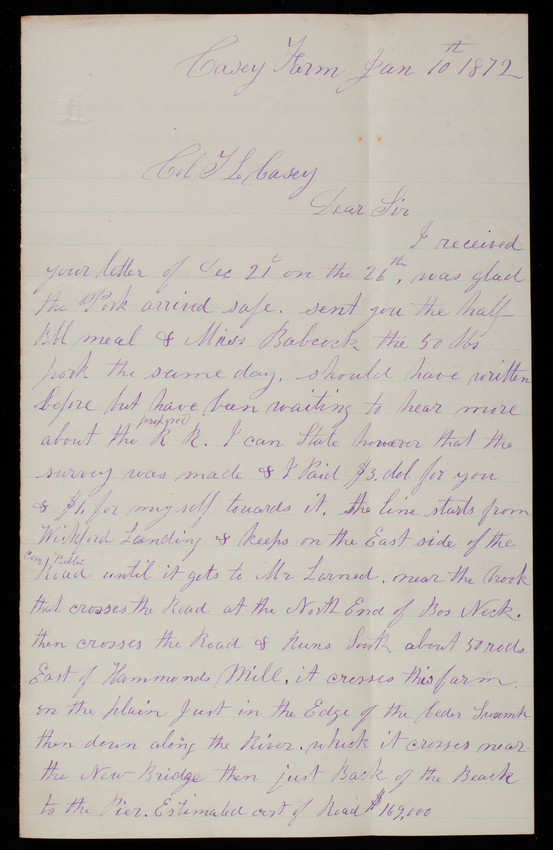 Casey Farm Jan 10th 1872
Col T L Casey
Dear Sir
I received
your letter of Dec 21st on the 26th, was glad
the Pork arrived safe. sent you the half
Bbl meal & Miss Babcock the 50 lbs
pork the same day. should have written
before but have been waiting to hear more
about the proposed R R. I can State however that the
survey was made & I Paid $3. dol for you
& $1. for my self towards it. the line starts from
Wickford Landing & keeps on the East side of the
Public
Road until it gets to Mr Larned. near the brook
that crosses the Road at the North End of Bos Neck.
then crosses the Road & Runs South about 50 rods
East of Hammonds Mill, it crosses this farm
on the plain Just in the Edge of the Ceder
then down along the River. which it crosses near
the New Bridge then just Back of the Beach
to the Pier. Estimated cost of Road $169,000